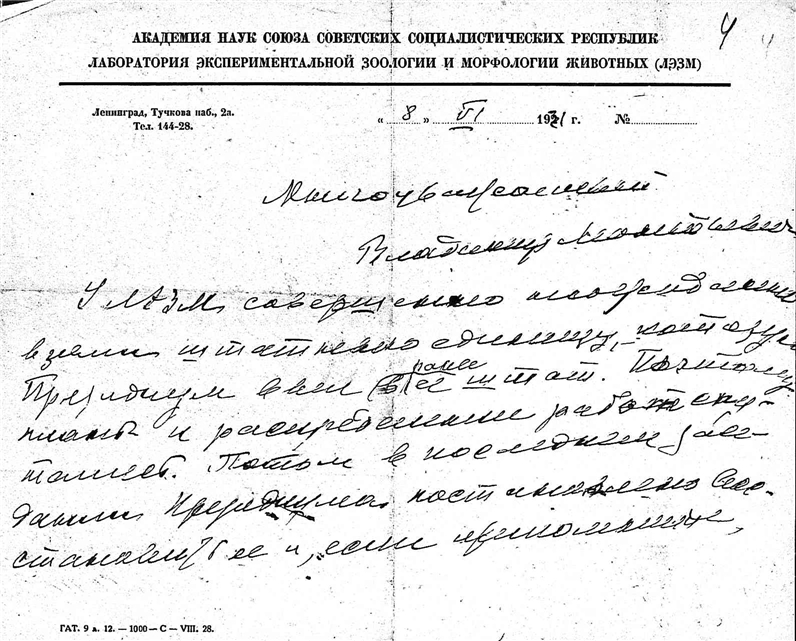 4
АКАДЕМИЯ НАУК СОЮЗА СОВЕТСКИХ СОЦИАЛИСТИЧЕСКИХ РЕСПУБЛИК
ЛАБОРАТОРИЯ ЭКСПЕРИМЕНТАЛЬНОЙ ЗООЛОГИИ И МОРФОЛОГИИ ЖИВОТНЫХ (ЛЭЗМ)
Ленинград, Тучкова наб., 2а.
Тел. 144-28.
« 8 » VI 1931 г. №
Многоуважаемый
Владимир
У ЛЭЗМ совершенно неожиданно
взяли штатную единицу, которую
Президиум ввел ранее в её штат. Поэтому
планы и распределение работ
Потом в последнем засе-
дании Президиума постановлено вос-
становить ее и, если
ГАТ. 9 л. 12. — 1000 — С — VIII. 28.